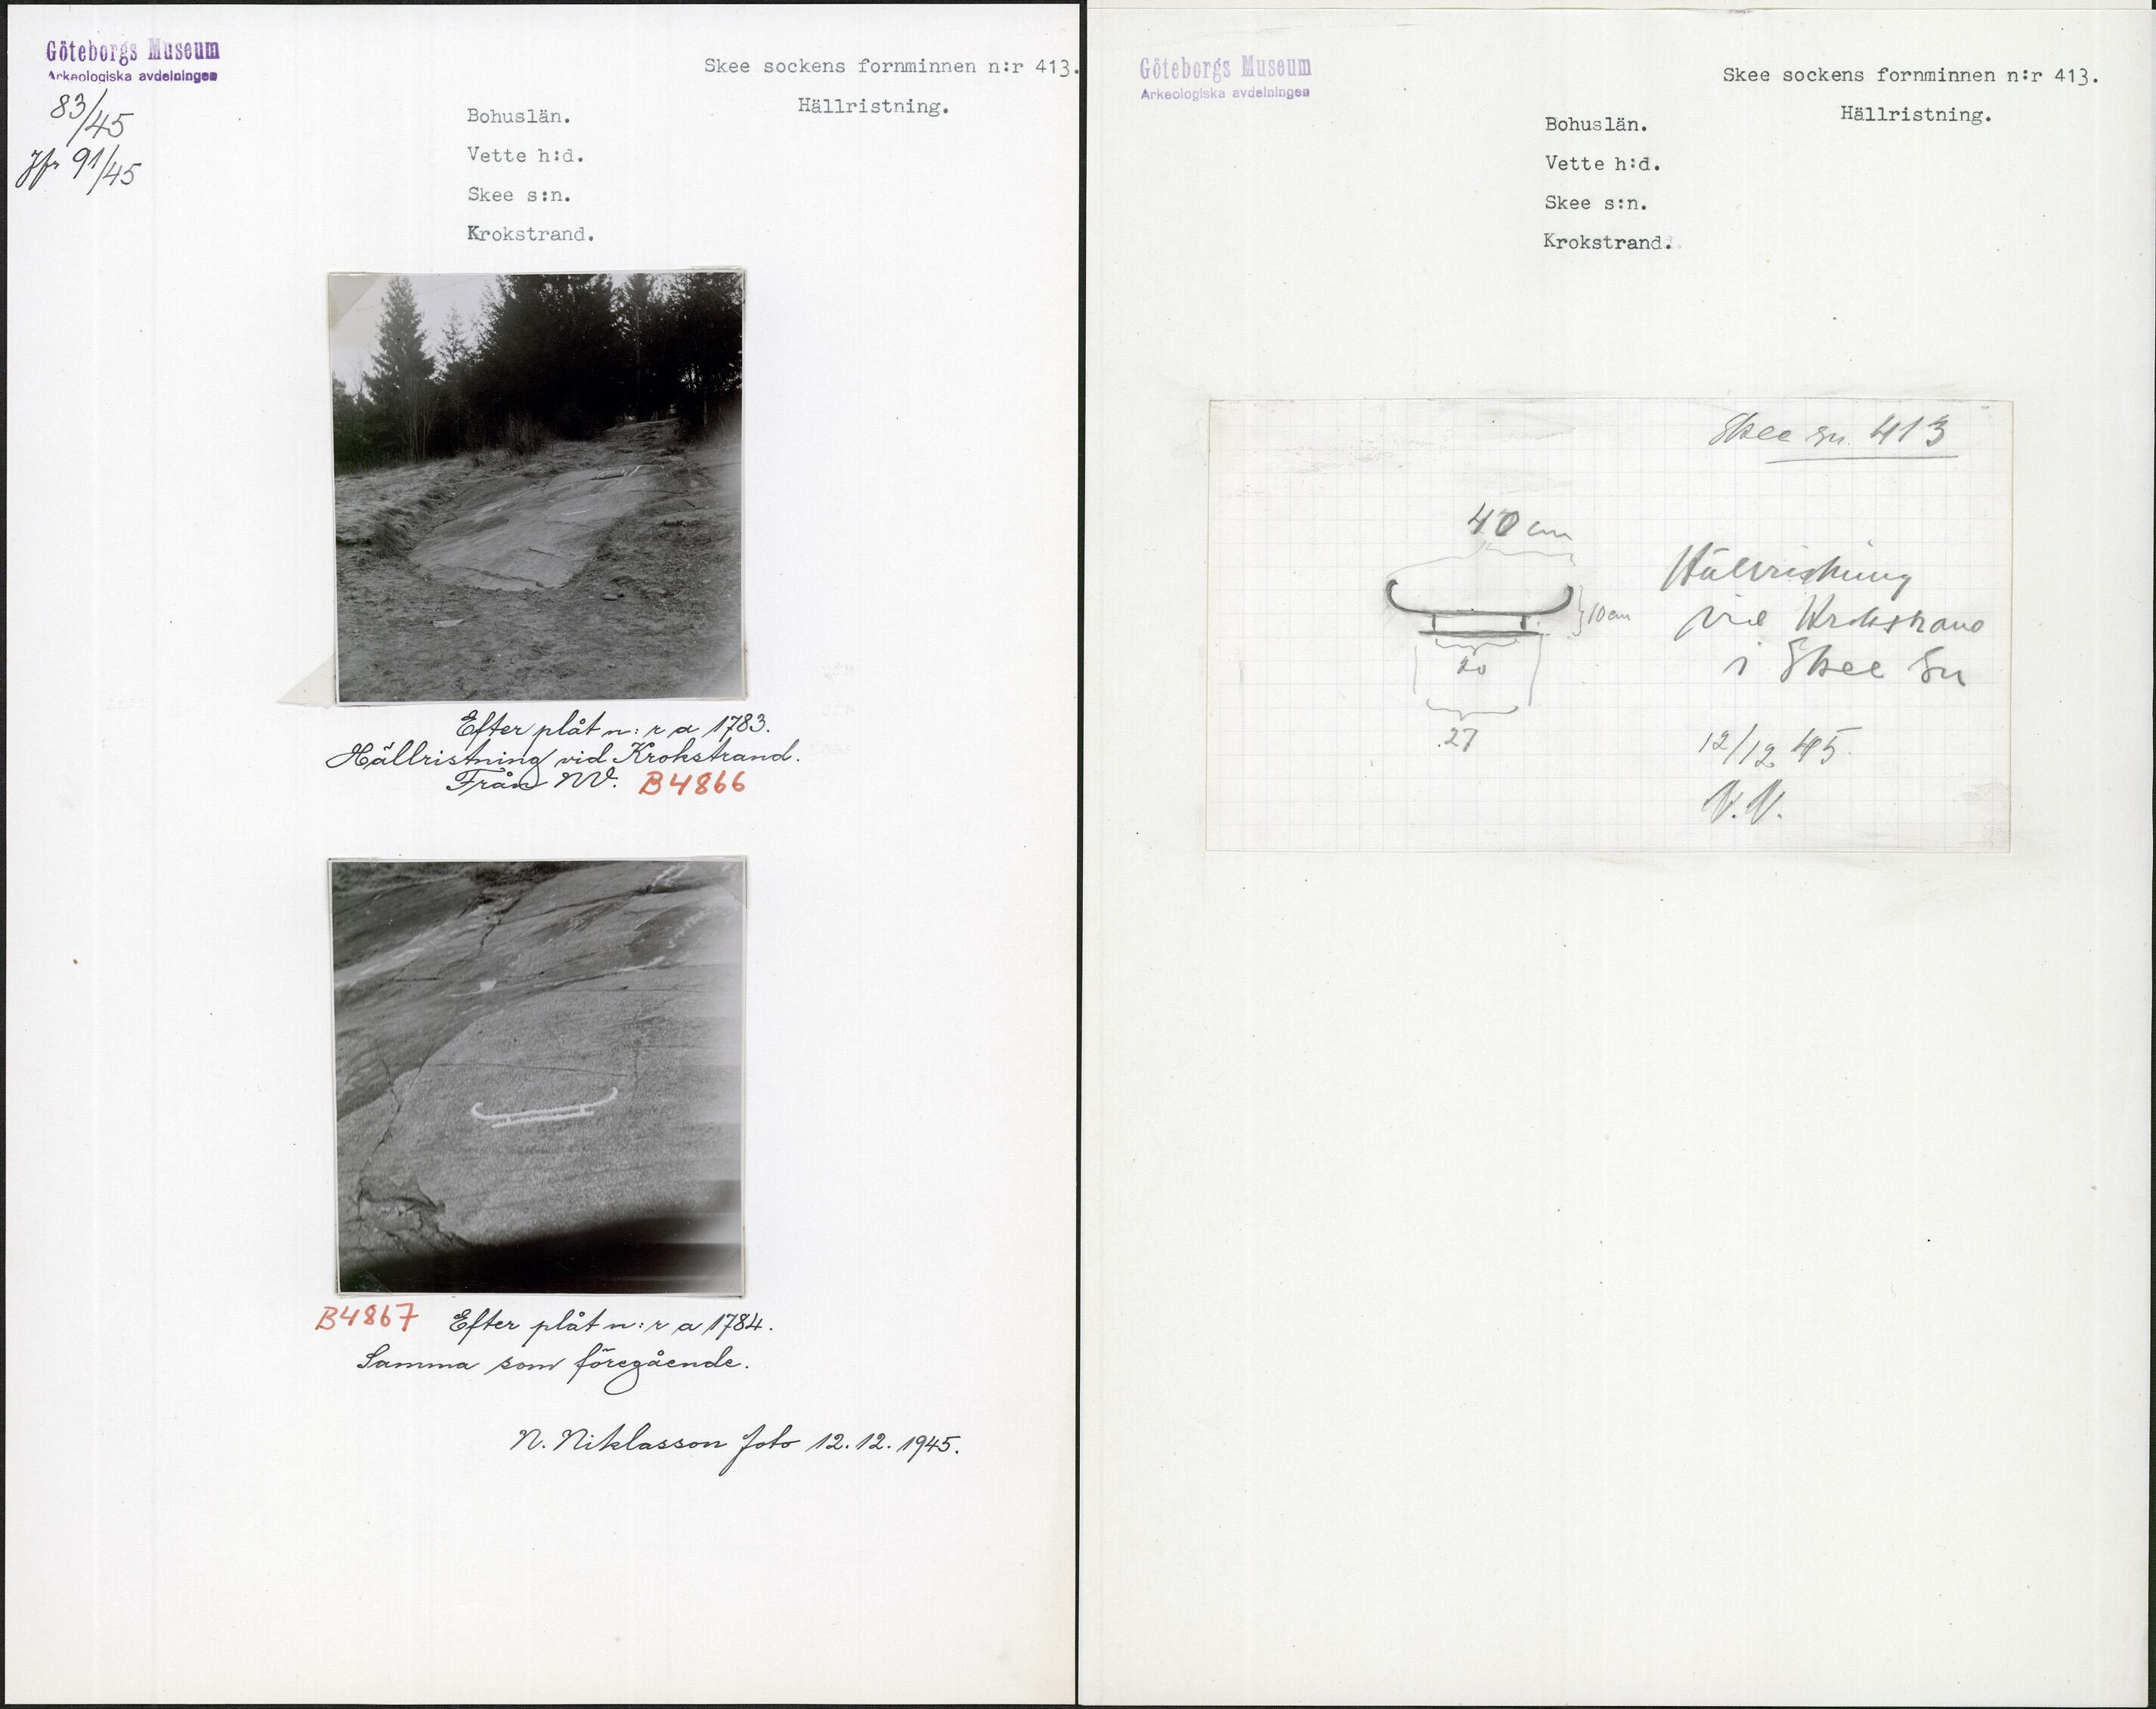 Göteborgs Museum
Arkeologiska avdelningen
83/45
Jfr 91/45
Skee sockens fornminnen n:r 413.
Hällristning.
Bohuslän.
Vette h:d.
Skee s:n.
Krokstrand.
Efter plåt n:r a 1783.
Hällristning vid Krokstrand.
Från NV. B4866
B4867 Efter plåt n:r a 1784.
Samma som föregående.
N. Niklasson foto 12.12.1945.
Göteborgs Museum
Arkeologiska avdelningen
Skee sockens fornminnen n:r 413.
Hällristning.
Bohuslän.
Vette h:d.
Skee s:n.
Krokstrand.
Skee sn. 413
40 cm
10 cm
20
27
Hällristning
vid Krokstrand
i Skee sn
12/12 45
N.N.